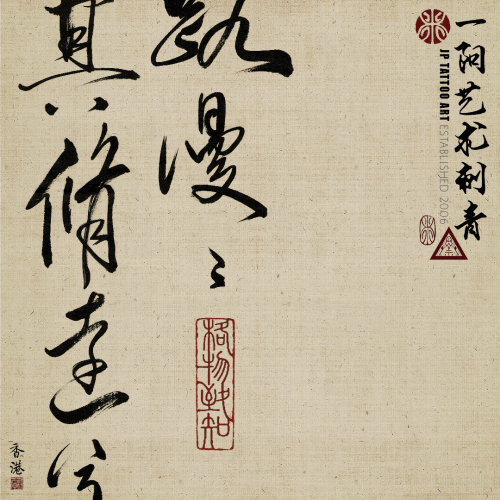 一阳艺术刺青
JP TATTOO ART ESTABLISHED 2006
路漫〻
其修远兮
格物致知
香港